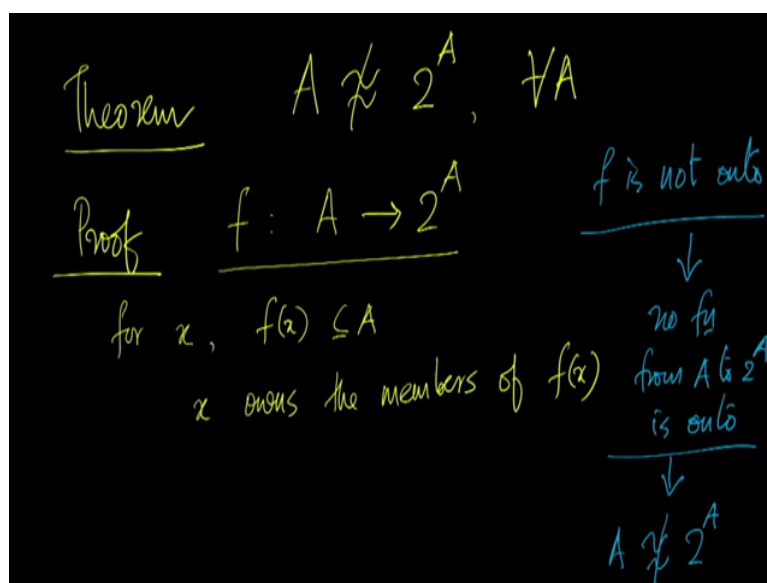 Theorem A ≉ 2^A, ∀A
Proof f : A → 2^A
for x, f(x) ⊆ A
x owns the members of f(x)
f is not onto
↓
no fn
from A to 2^A
is onto
↓
A ≉ 2^A